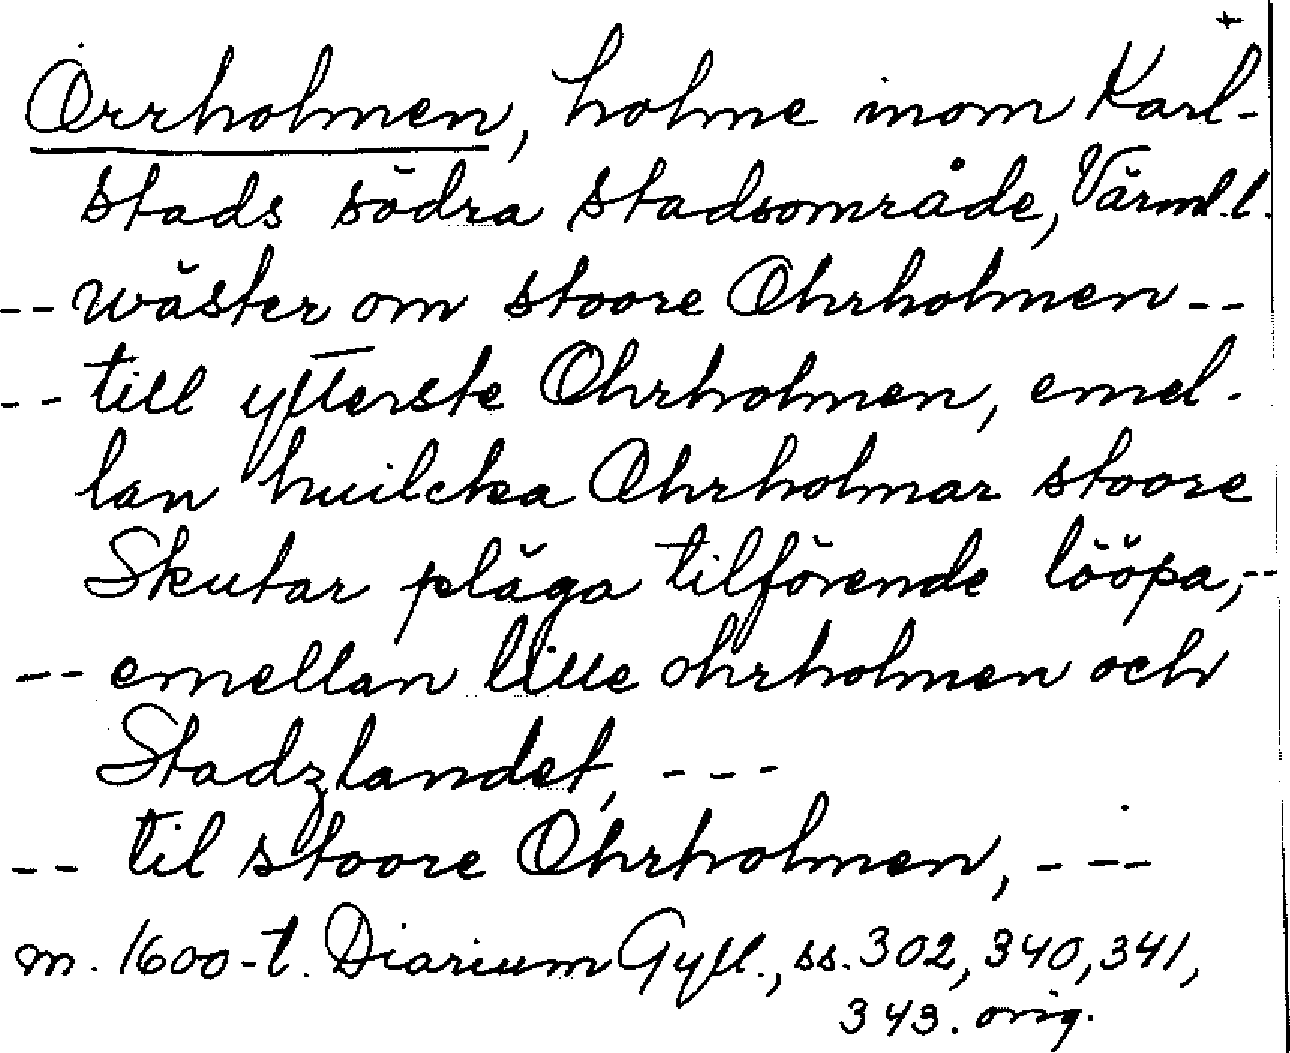 +
Orrholmen, holme inom Karl-
stads södra stadsområde, Värml.l.
-- wäster om stoore Ohrholmen --
-- till ytterste Ohrholmen, emel-
lan huilcka Ohrholmar stoore
Skutar pläga tilförende lööpa, --
-- emellan lille ohrholmen och
Stadzlandet, ---
-- til stoore Ohrholmen, ---
m. 1600-t. Diarium Gyll., ss. 302, 340, 341,
343. orig.